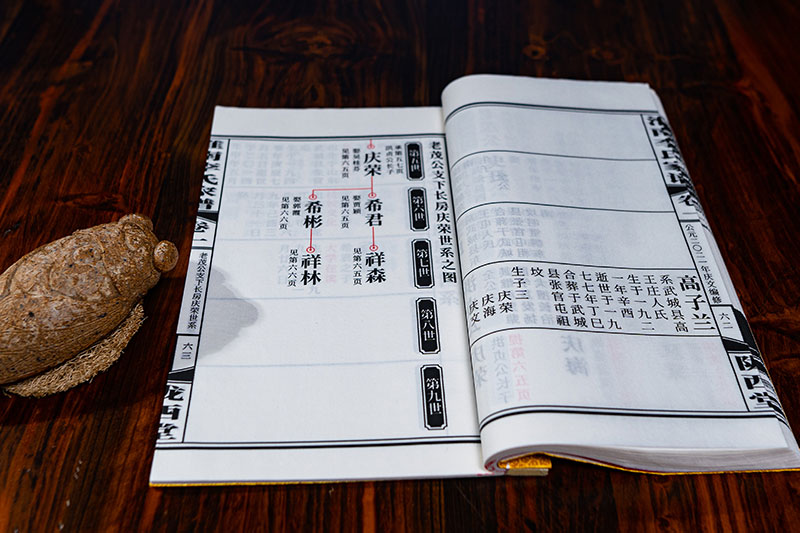 老茂公支下长房庆荣世系之图
第五世
第六世
第七世
第八世
第九世
承第五七页
洪贞公长子
庆荣
娶吴桂芬
见第六五页
希君
娶贾颖
见第六五页
希彬
娶郭霞
见第六六页
祥森
见第六五页
祥林
见第六六页
李氏家谱
卷一
老茂公支下长房庆荣世系
六三
陇西堂
李氏家谱
卷一
公元二〇二二年庆文编修
六二
陇西堂
高子兰
系武城县高
王庄人氏
生于一九二
一年辛酉
逝世于一九
七七年丁巳
合葬于武城
县张官屯祖
坟
生子三
庆荣
庆海
庆文